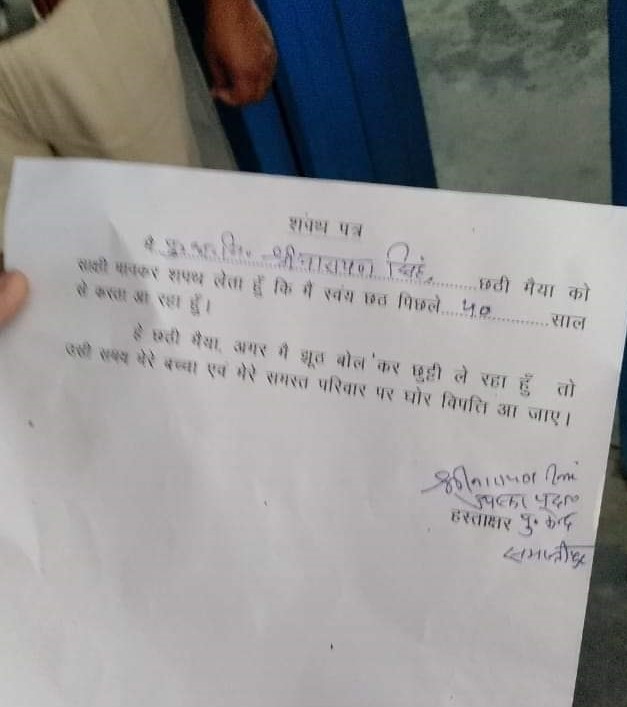 शपथ पत्र
मै पु०अ०नि० श्रीनारायण सिंह, छठी मैया को
साक्षी मानकर शपथ लेता हूँ कि मै स्वंय छठ पिछले 10 साल
से करता आ रहा हूँ।
हे छठी मैया, अगर मै झूठ बोल कर छुट्टी ले रहा हूँ तो
उसी समय मेरे बच्चा एवं मेरे समस्त परिवार पर घोर विपत्ति आ जाए।
श्रीनारायण सिंह
हस्ताक्षर पु० केन्द्र